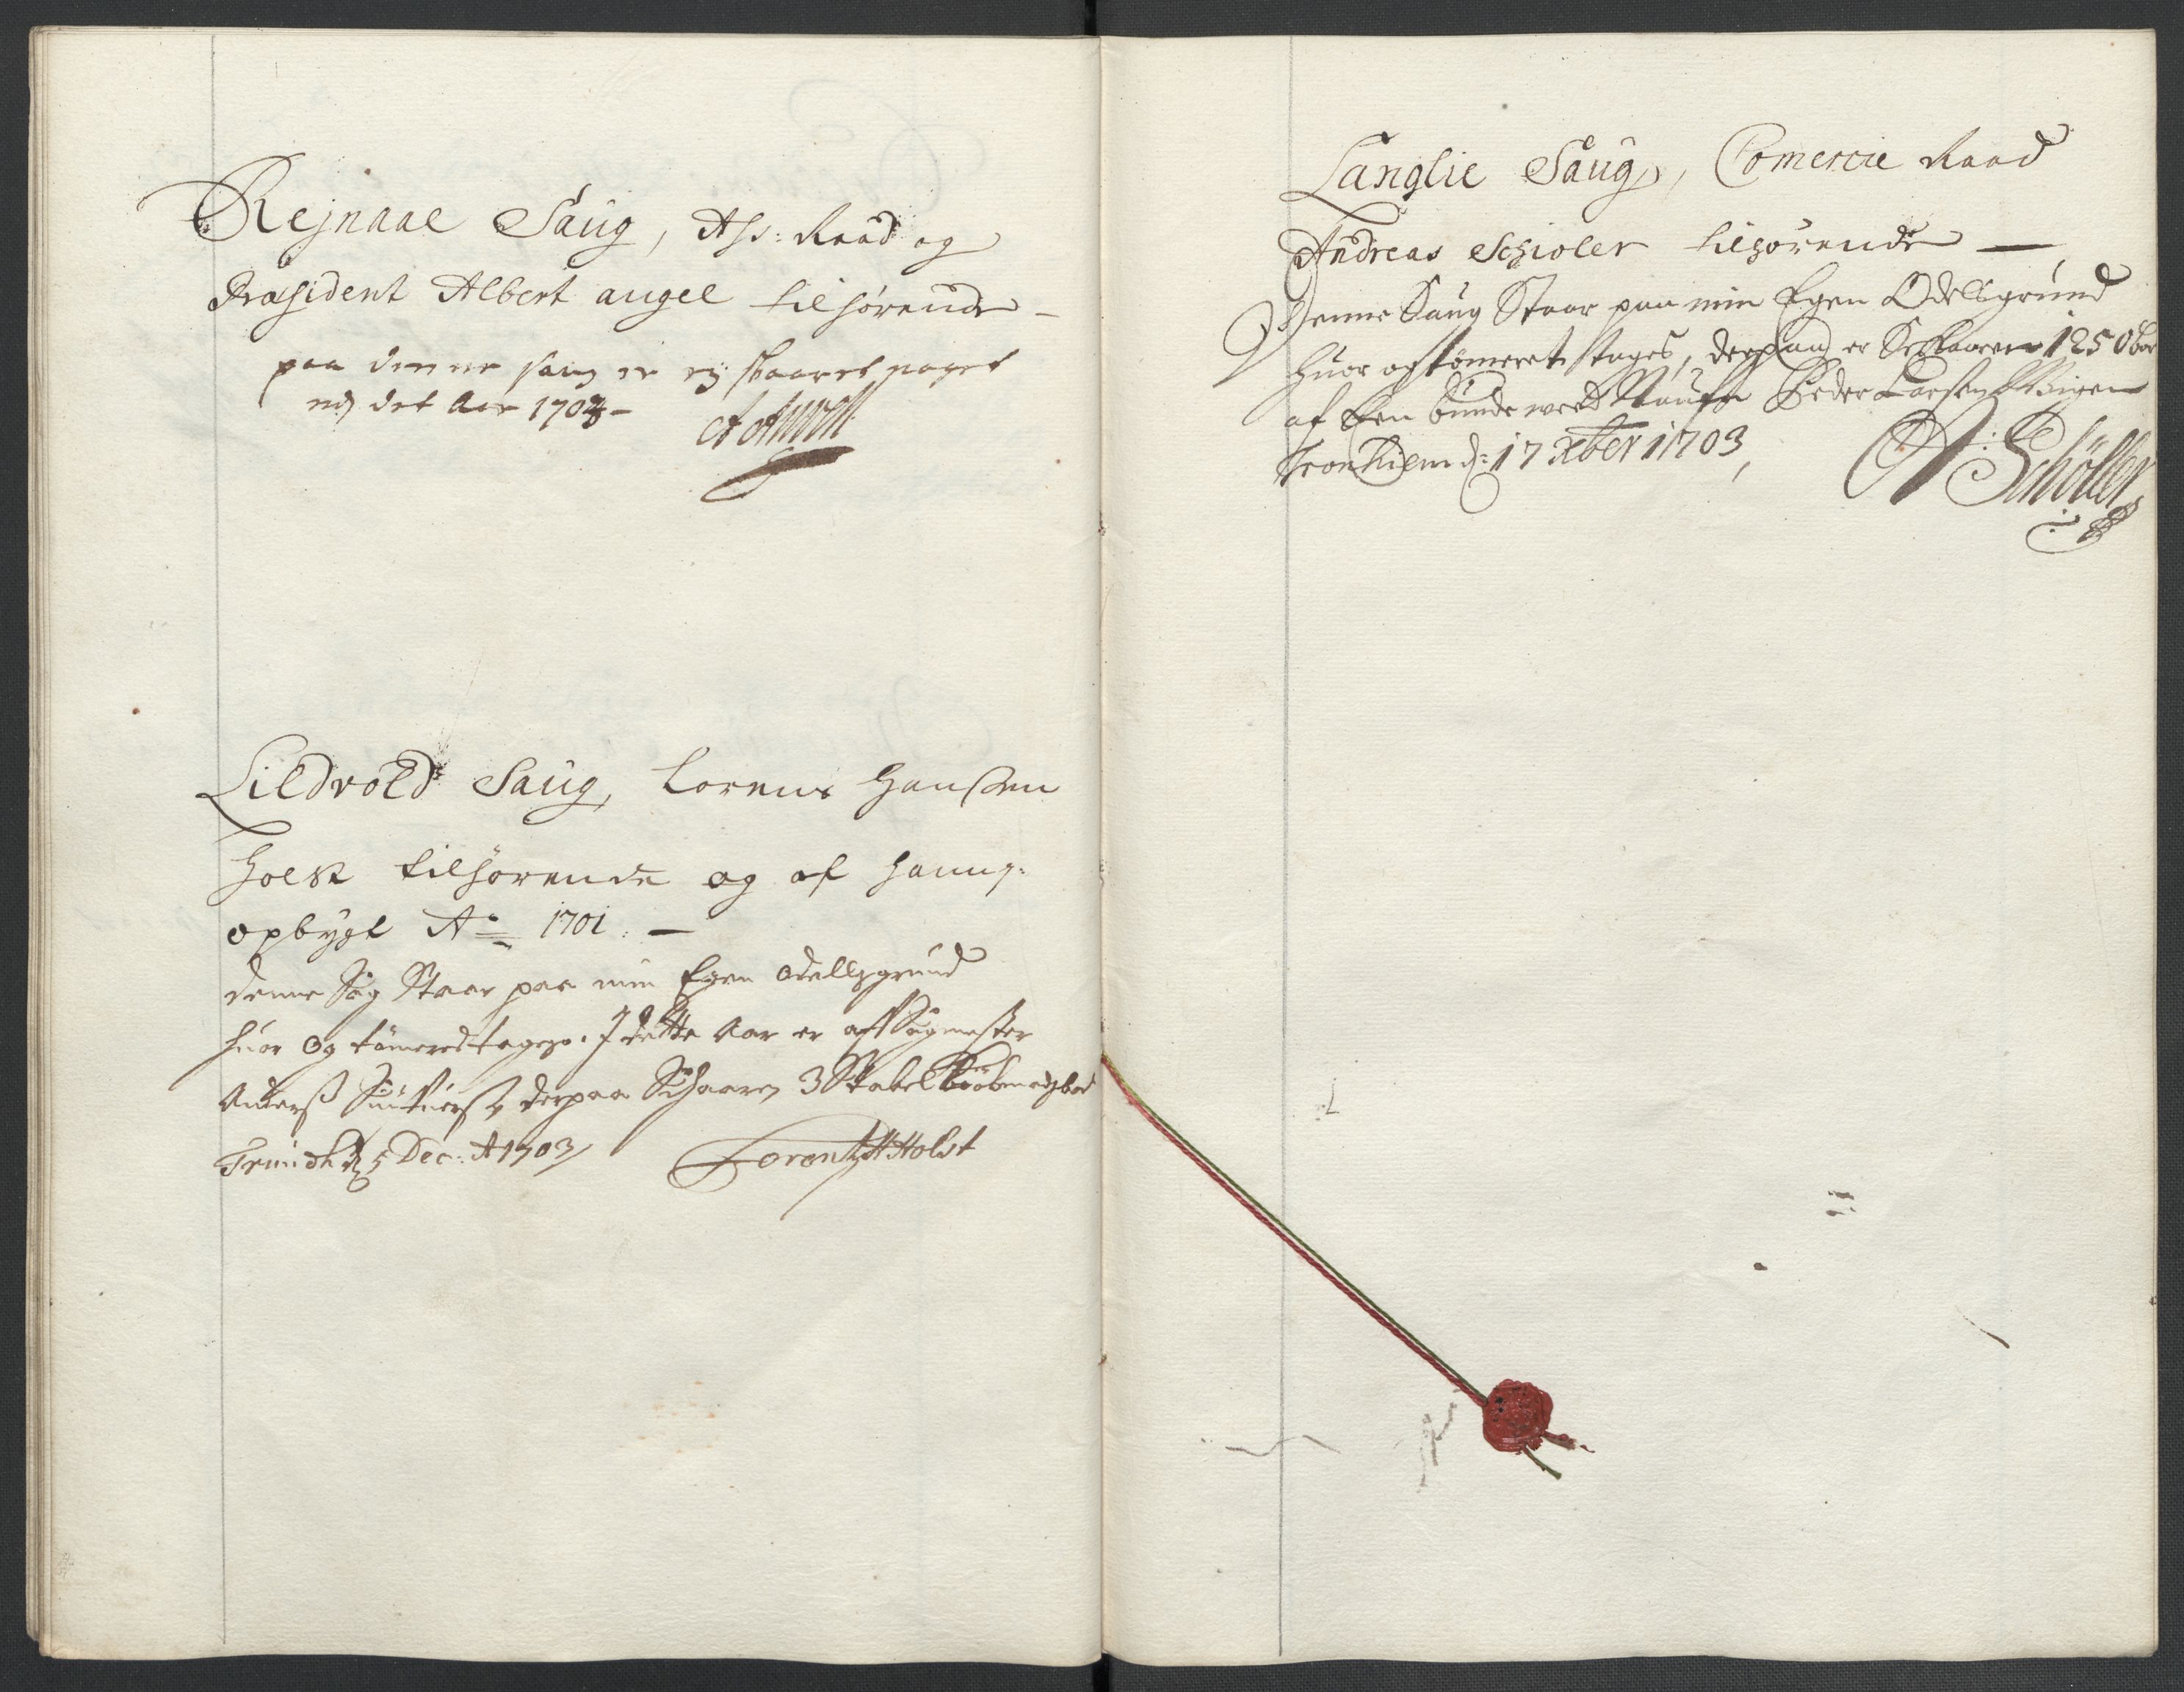 Rejnaae Saug, Ass: Raad og
Præsident Albert angel tilhørende –
paa denne saug er ej skaaret noget
udj det Aar 1703 –
A Angell
Lildvold Saug, Lorens Hanssen
Holst tilhørende og af hannem
opbygt A° 1701. —
denne Sag Staar paa min Egen odellsgrund
huor Og tømmered tages. I dette Aar er aff Sagmester
Anders derpaa Schaaren 3 Stabel bord
Trundh. d 5 Dec: A 1703/
Lorentz H Holst
Langlie Saug, Comercie Raad
Andreas Schiøler tilhørende —
Denne Saug Staar paa min Egen Odelsgrund
huor og tømeret tages, derpaa er Skaaren 1250 bor
af Een bunde ved Naufn Peder Larsen
Tronhiem d: 17 Xber 1703,
A: Schöller